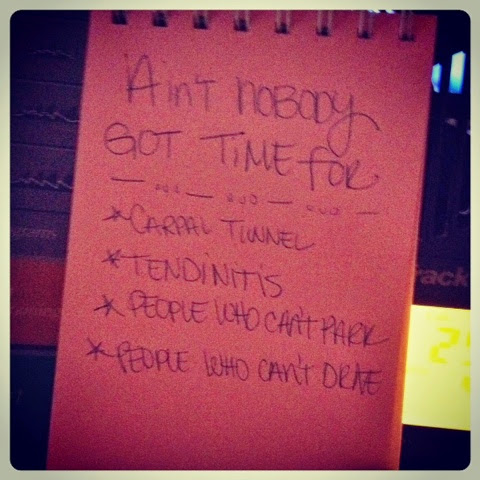 AiNT NOBODY
GOT TiME FOR
* CARPAL TUNNEL
* TENDINITIS
* PEOPLE WHO CAN'T PARK
* PEOPLE WHO CAN'T DRIVE
rack